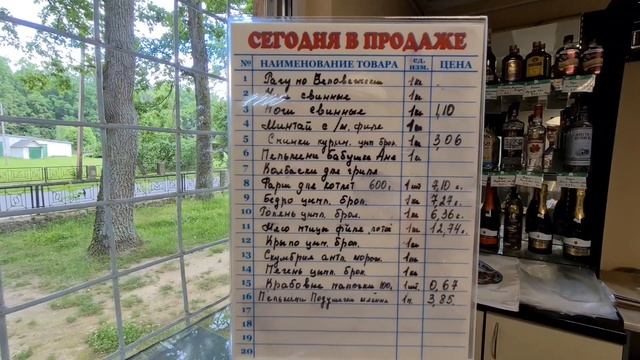 СЕГОДНЯ В ПРОДАЖЕ
№ НАИМЕНОВАНИЕ ТОВАРА ед. изм. ЦЕНА
1 Рагу по 1к
2 свинные 1к
3 Ноги свинные 1к 1,10
4 Минтай с/м. филе 1к
5 Спинки курин. цып брол. 1к 3,06
6 Пельмени Бабушка Аня 1к
7 Колбаски для гриля
8 Фарш для котлет 600г. 1шт 7,10 г.
9 Бедро цыпл. брол. 1к 7,27 г.
10 Голень цыпл. брол. 1к 6,36 г.
11 Мясо птицы филе 1к 12,74 г.
12 Крыло цып. брол. 1к
13 Скумбрия атл. морож. 1к
14 Печень цыпл. брол. 1к
15 Крабовые палочки 100г 1шт. 0,67
16 Пельмени 3,85
17
18
19
20